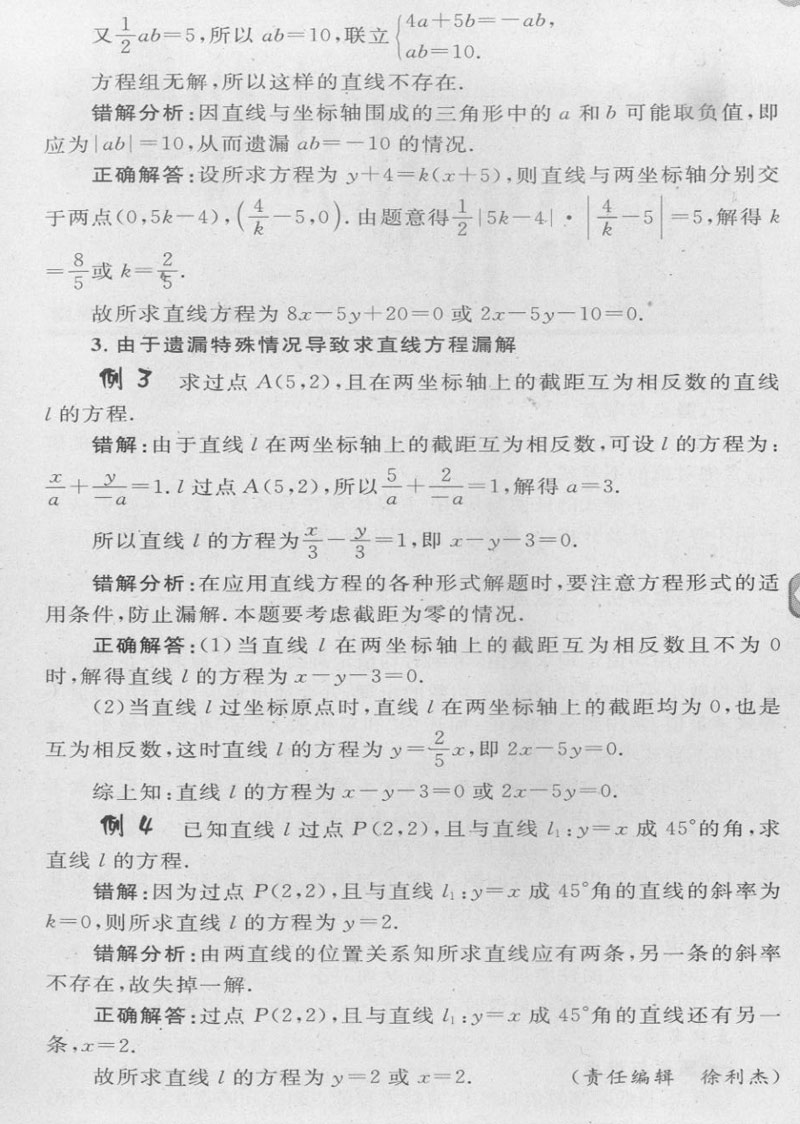 又1/2ab=5,所以 ab=10,联立{4a+5b=-ab, ab=10.
方程组无解,所以这样的直线不存在.
错解分析:因直线与坐标轴围成的三角形中的 a 和 b 可能取负值,即
应为|ab|=10,从而遗漏 ab=-10 的情况.
正确解答:设所求方程为 y+4=k(x+5),则直线与两坐标轴分别交
于两点(0,5k-4),(4/k-5,0).由题意得1/2|5k-4|·|4/k-5|=5,解得 k
=8/5或 k=2/5.
故所求直线方程为 8x-5y+20=0 或 2x-5y-10=0.
3.由于遗漏特殊情况导致求直线方程漏解
例 3 求过点 A(5,2),且在两坐标轴上的截距互为相反数的直线
l 的方程.
错解:由于直线 l 在两坐标轴上的截距互为相反数,可设 l 的方程为:
x/a+y/-a=1.l 过点 A(5,2),所以5/a+2/-a=1,解得 a=3.
所以直线 l 的方程为x/3-y/3=1,即 x-y-3=0.
错解分析:在应用直线方程的各种形式解题时,要注意方程形式的适
用条件,防止漏解.本题要考虑截距为零的情况.
正确解答:(1)当直线 l 在两坐标轴上的截距互为相反数且不为 0
时,解得直线 l 的方程为 x-y-3=0.
(2)当直线 l 过坐标原点时,直线 l 在两坐标轴上的截距均为 0,也是
互为相反数,这时直线 l 的方程为 y=2/5x,即 2x-5y=0.
综上知:直线 l 的方程为 x-y-3=0 或 2x-5y=0.
例 4 已知直线 l 过点 P(2,2),且与直线 l₁:y=x 成 45°的角,求
直线 l 的方程.
错解:因为过点 P(2,2),且与直线 l₁:y=x 成 45°角的直线的斜率为
k=0,则所求直线 l 的方程为 y=2.
错解分析:由两直线的位置关系知所求直线应有两条,另一条的斜率
不存在,故失掉一解.
正确解答:过点 P(2,2),且与直线 l₁:y=x 成 45°角的直线还有另一
条,x=2.
故所求直线 l 的方程为 y=2 或 x=2. (责任编辑 徐利杰)